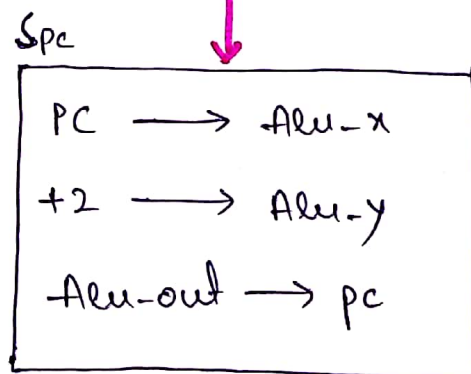 Spc
PC → Alu-x
+2 → Alu-y
Alu-out → pc